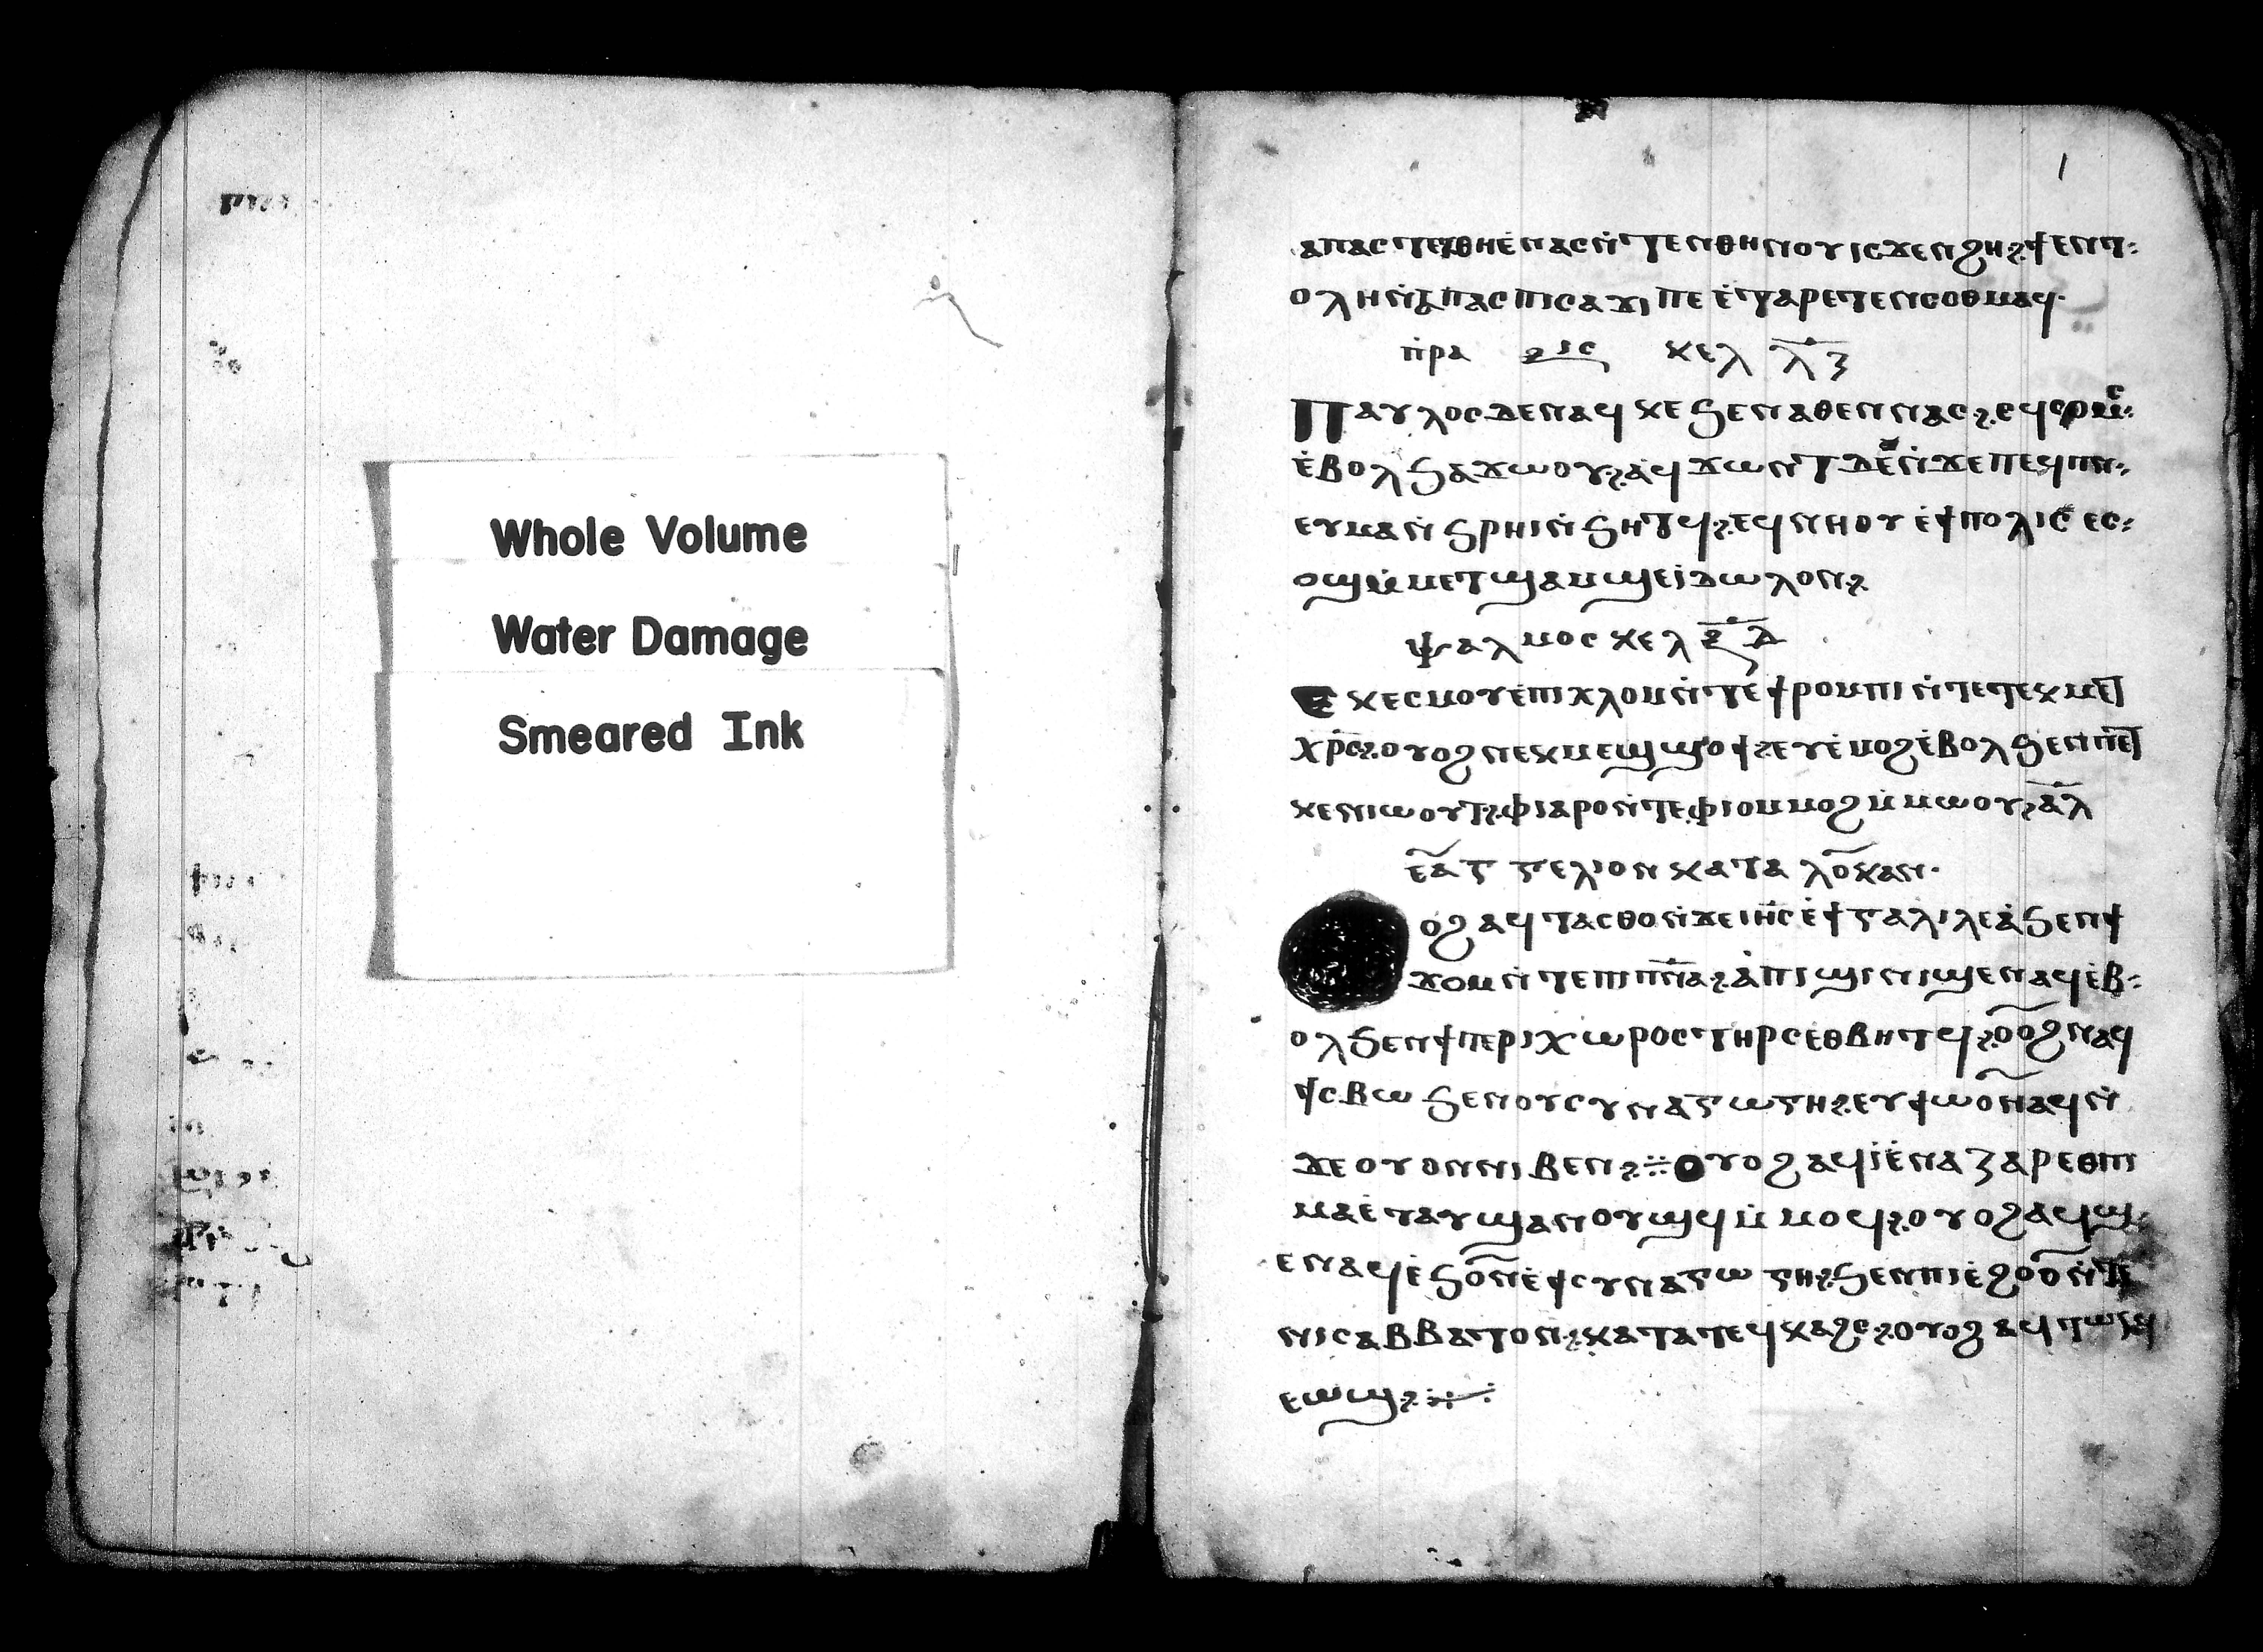 Whole Volume
Water Damage
Smeared Ink
1
ⲁⲡⲁⲥ ⲛ̀ⲧⲉⲛⲑⲏⲛⲟⲩ ⲓⲥϫⲉⲛϩⲏ ϯⲉⲛⲧ
ⲟⲗⲏ ⲛ̀ⲁⲡⲁⲥ ⲡⲓⲥⲁϫⲓ ⲡⲉ ⲉ̀ⲧⲁⲣⲉⲧⲉⲛⲥⲟⲑⲙⲉϥ
ⲡ̀ⲣⲁ ⲕⲉⲗ ⲗ̅ⲍ̅
Ⲡⲁⲩⲗⲟⲥ ⲇⲉ ⲛⲁϥ ⲭⲉ ϧⲉⲛ ⲁⲑⲉⲛⲛⲁⲥ
ⲉ̀ⲃⲟⲗ ϧⲁϫⲱⲟⲩ ⲁ̀ϥϫⲱⲛⲧ ⲇⲉ ⲛ̀ϫⲉ ⲡⲉϥⲡⲛ
ⲉⲩⲙⲁ ⲛ̀ϧⲣⲏⲓ ⲛ̀ϧⲏⲧϥ ⲉϥⲛⲏⲟⲩ ⲉ̀ϯⲡⲟⲗⲓⲥ ⲉⲥ
ⲟϣ ⲙ̀ⲙⲉⲧϣⲁⲙϣⲉⲓ̀ⲇⲱⲗⲟⲛ
ⲯⲁⲗⲙⲟⲥ ⲕⲉⲗ ⲝ̅ⲇ̅
Ⲉⲕⲉⲥⲙⲟⲩ ⲉ̀ⲡⲓⲭⲗⲟⲙ ⲛ̀ⲧⲉ ϯⲣⲟⲙⲡⲓ ⲛ̀ⲧⲉ ⲧⲉⲕⲙⲉⲧ
ⲭⲣ̅ⲥ̅ ⲟⲩⲟϩ ⲛⲉⲕⲙⲉϣϣⲟϯ ⲉⲩⲉ̀ⲙⲟϩ ⲉ̀ⲃⲟⲗ ϧⲉⲛ ⲡⲕⲉⲛⲓ
ⲕⲉⲛⲓⲱⲟⲩⲧ ⲫⲓⲁⲣⲟ ⲛ̀ⲧⲉ ⲫⲓⲟⲙ ⲙⲟϩ ⲙ̀ⲙⲱⲟⲩ ⲁ̅ⲗ̅
ⲉⲩⲁⲅⲅⲉⲗⲓⲟⲛ ⲕⲁⲧⲁ ⲗⲟⲩⲕⲁⲛ
ⲟϩ ⲁϥⲧⲁⲥⲑⲟ ⲛ̀ϫⲉ ⲓⲏ̅ⲥ̅ ⲉ̀ϯⲅⲁⲗⲓⲗⲉⲁ̀ ϧⲉⲛ ϯ
ϫⲟⲙ ⲛ̀ⲧⲉ ⲡⲓⲡⲛ̅ⲁ̅ ⲁ̀ ⲡⲓϣⲓⲛⲓ ϣⲉⲛⲁϥ ⲉ̀ⲃ
ⲟⲗ ϧⲉⲛ ϯⲡⲉⲣⲓⲭⲱⲣⲟⲥ ⲧⲏⲣⲥ ⲉⲑⲃⲏⲧϥ ⲟⲩⲟϩ ⲛⲁϥ
ϯⲥⲃⲱ ϧⲉⲛ ⲟⲩⲥⲩⲛⲁⲅⲱⲅⲏ ⲉⲩϯⲱⲟⲩ ⲛⲁϥ ⲛ̀
ϫⲉ ⲟⲩⲟⲛ ⲛⲓⲃⲉⲛ Ⲟⲩⲟϩ ⲁϥⲓ̀ ⲉ̀ⲛⲁⲍⲁⲣⲉⲑ ⲡⲓ
ⲙⲁ ⲉ̀ⲧⲁⲩϣⲁⲛⲟⲩϣϥ ⲙ̀ⲙⲟϥ ⲟⲩⲟϩ ⲁϥϣ
ⲉⲛⲁϥ ⲉ̀ϧⲟⲩⲛ ⲉ̀ϯⲥⲩⲛⲁⲅⲱⲅⲏ ϧⲉⲛ ⲡⲓⲉ̀ϩⲟⲟⲩ ⲛ̀ⲧⲉ
ⲛⲓⲥⲁⲃⲃⲁⲧⲟⲛ ⲕⲁⲧⲁ ⲧⲉϥⲕⲁϩⲥ ⲟⲩⲟϩ ⲁϥⲧⲱⲛϥ
ⲉⲱϣ